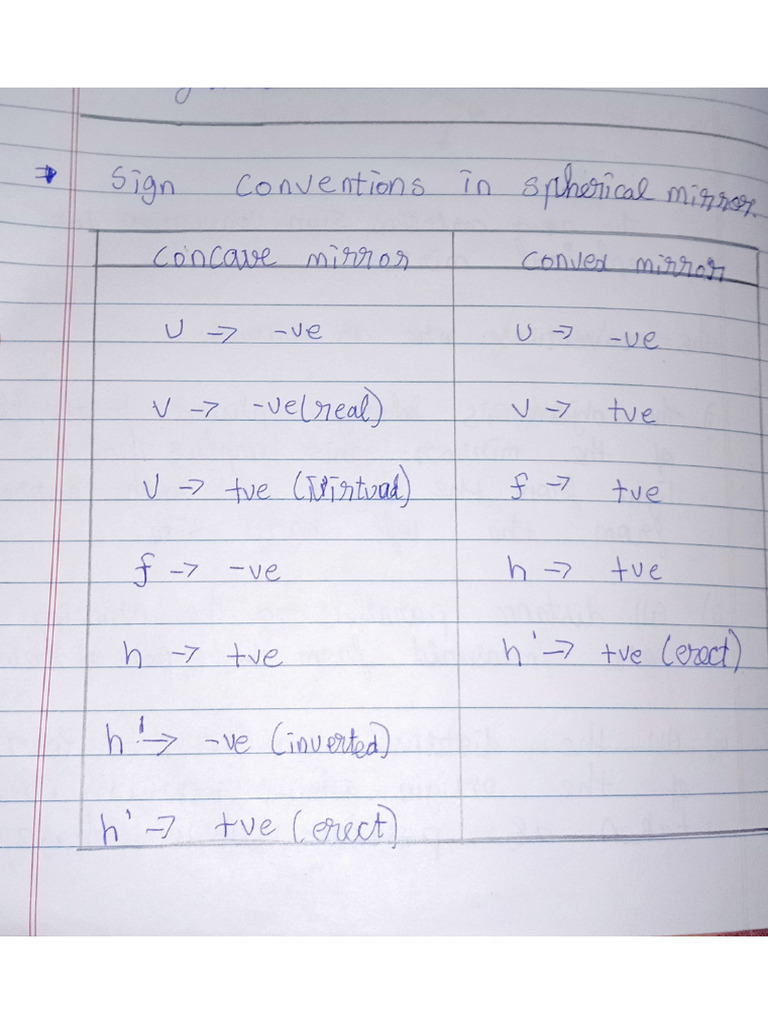 → Sign conventions in spherical mirror.
concave mirror convex mirror
u → -ve u → -ve
v → -ve (real) v → +ve
v → +ve (Virtual) f → +ve
f → -ve h → +ve
h → +ve h' → +ve (erect)
h' → -ve (inverted)
h' → +ve (erect)